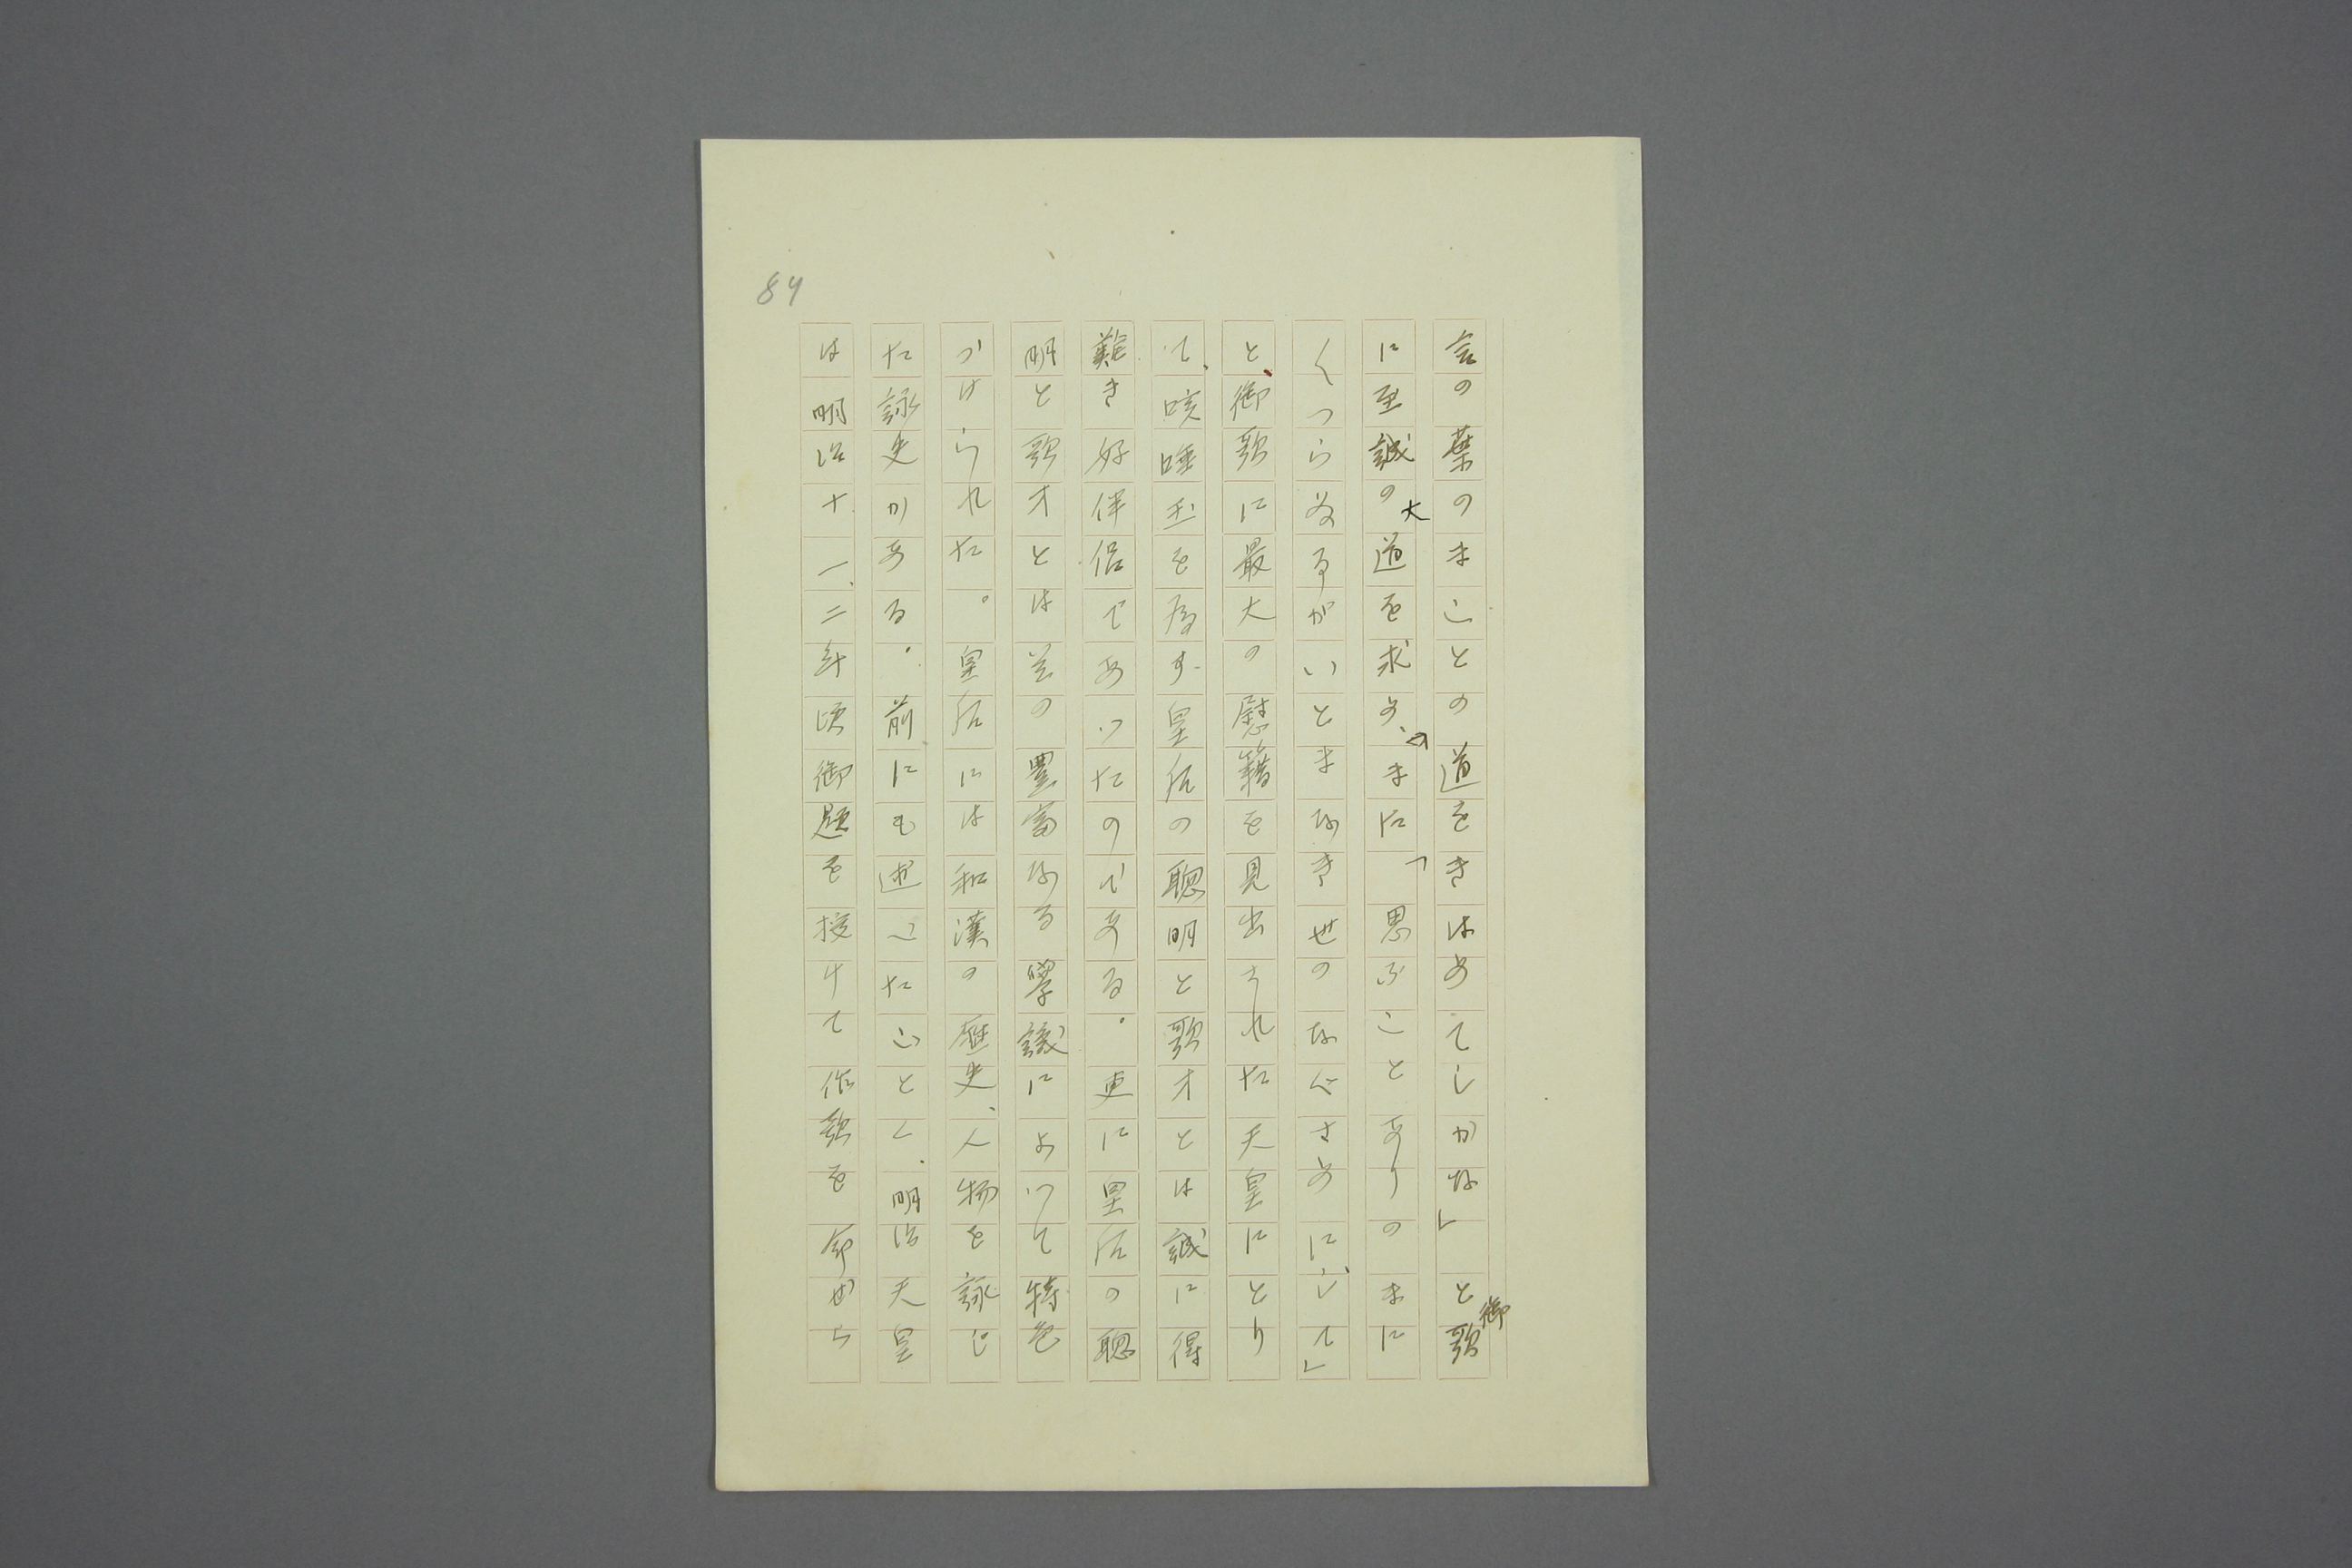 84
言の葉のまことの道をきはめてしがな」と御歌
に至誠の大道を求め、のまに「思ふことありのまに
くつらぬるがいとまなき世のなぐさめにして」
と、御歌に最大の慰籍を見出された天皇にとり
て、咳唾玉を為す皇后の聰明と歌才とは誠に得
難き好伴侶であつたのである。更に皇后の聰
明と歌才とは其の豊富なる學識によつて特色
づけられた。皇后には和漢の歴史、人物を詠じ
た詠史がある。前にも述べたごとく、明治天皇
は明治十一、二年頃御題を授けて作歌を命ぜら